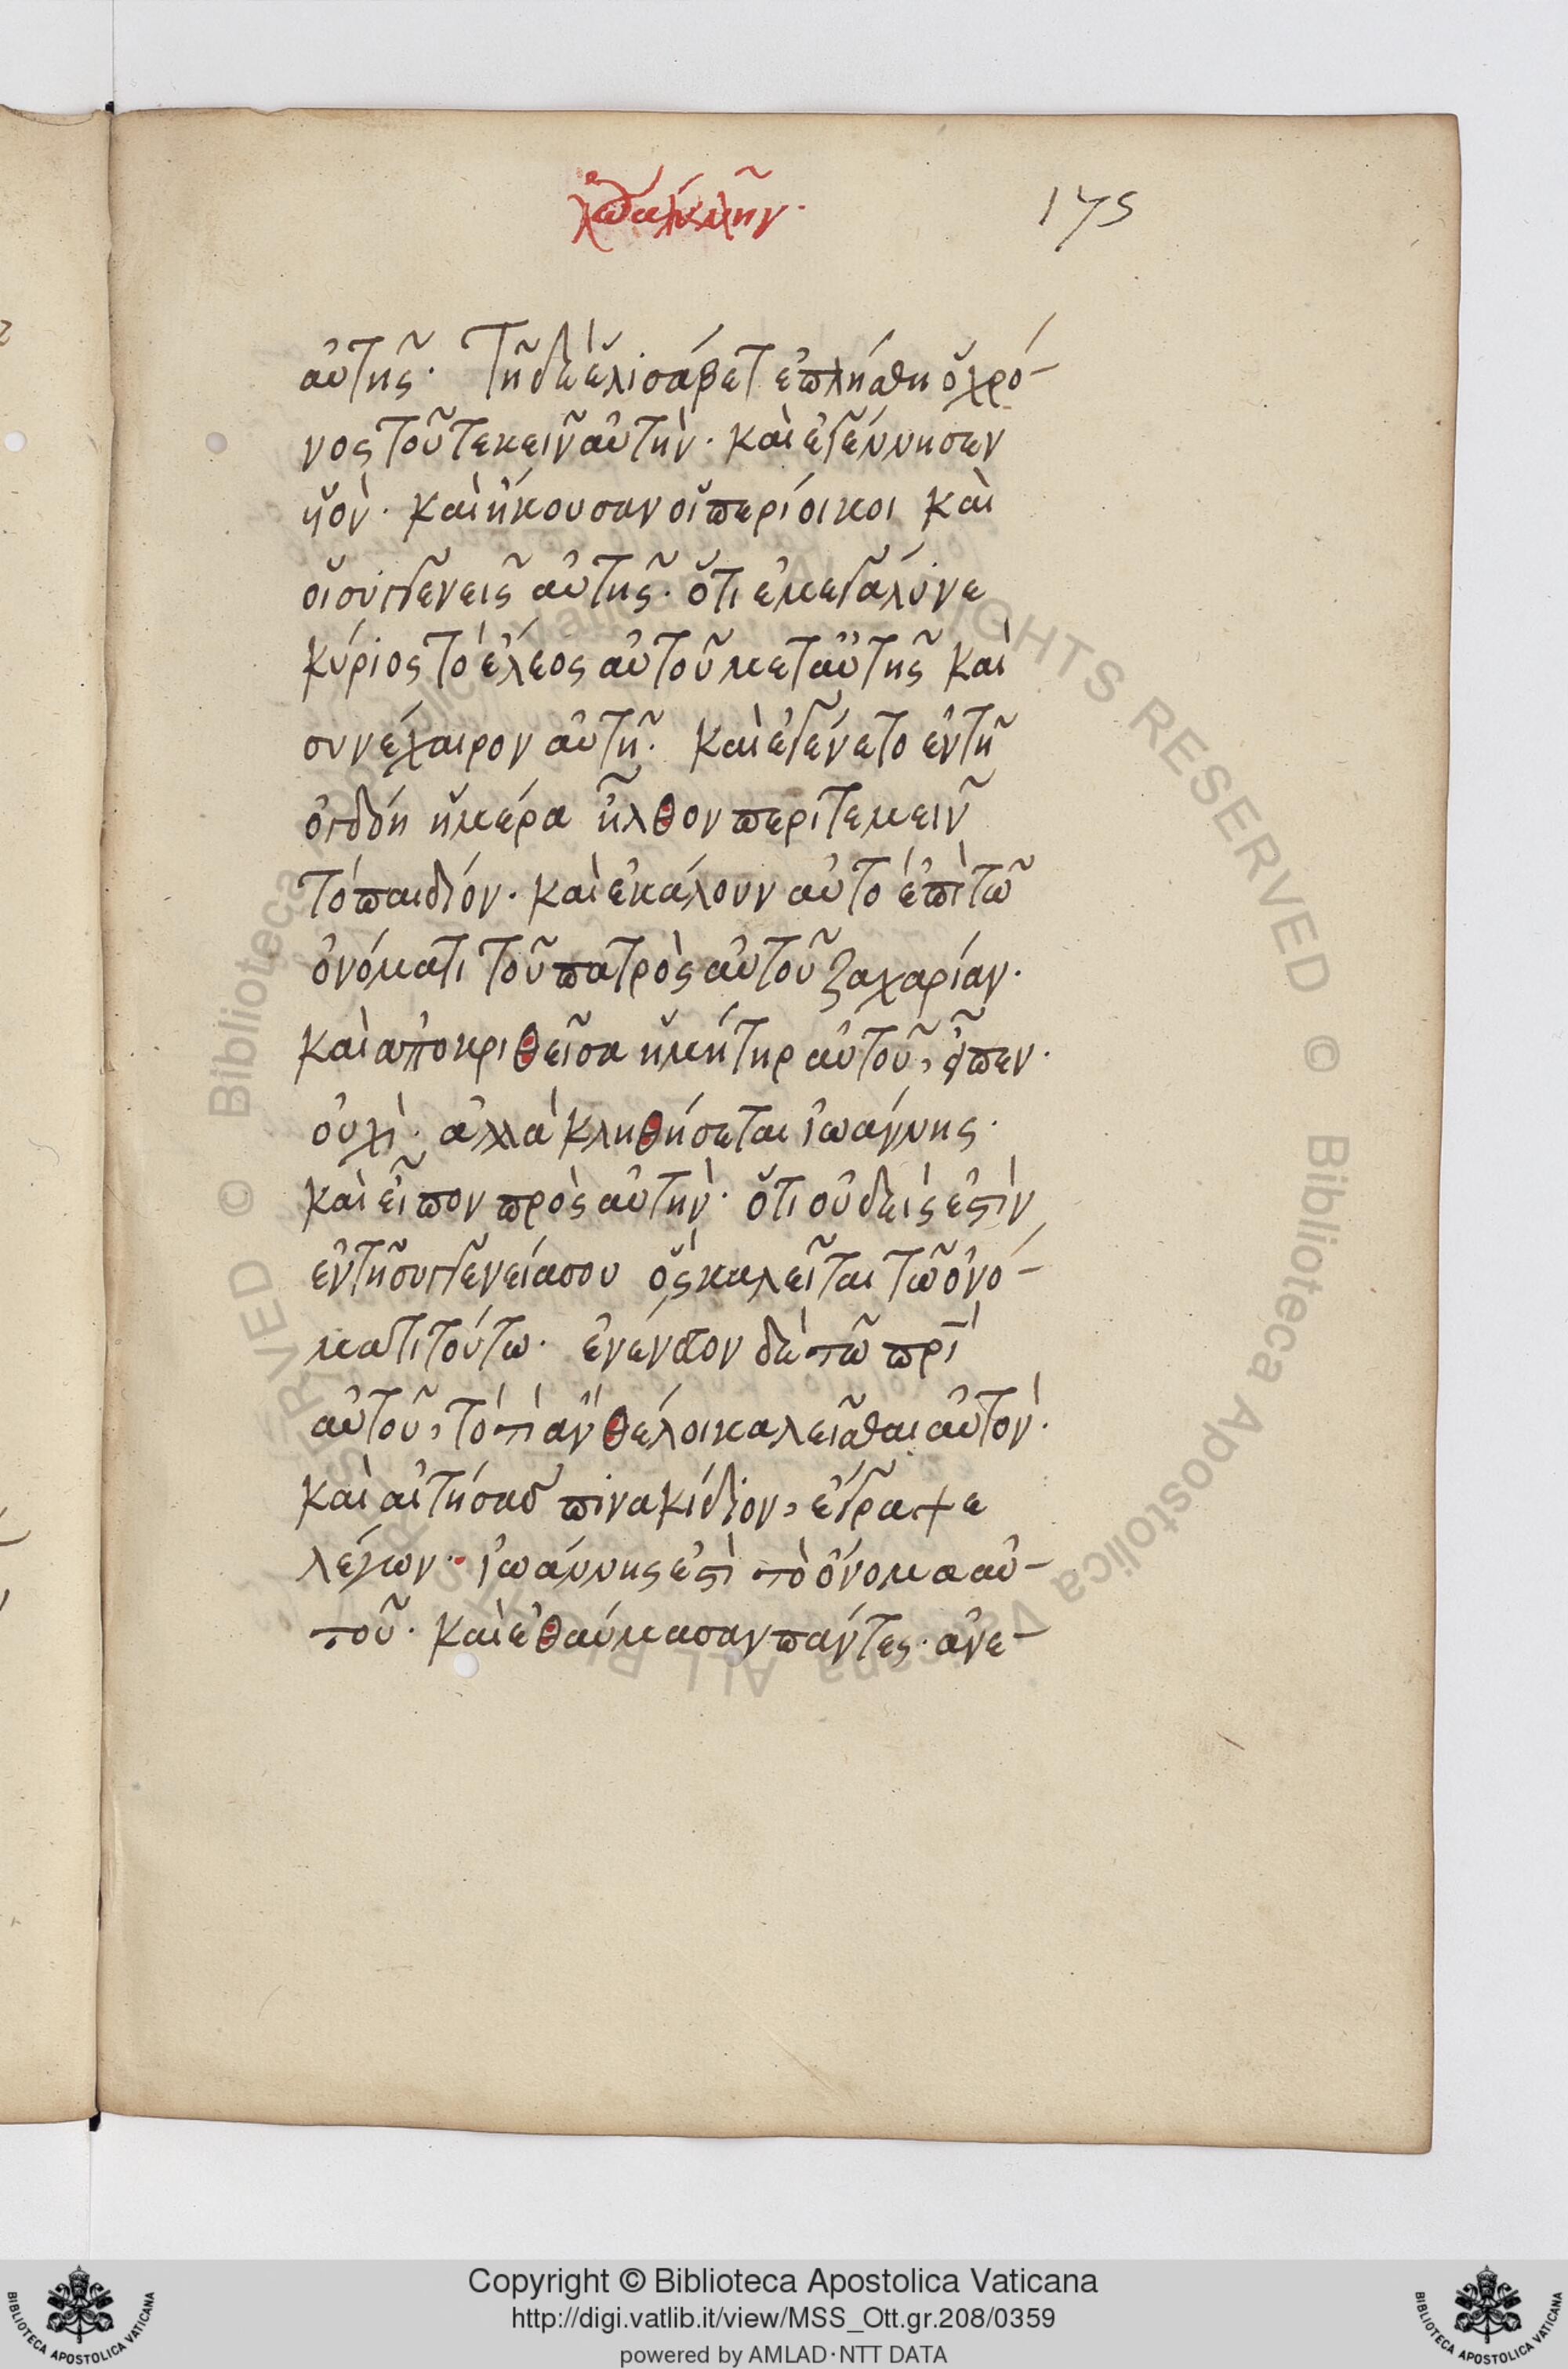 175
αὐτῆς. Τῆ δὲ ἐλισάβετ ἐπλήσθη ὁ χρό-
νος τοῦ τεκεῖν αὐτὴν. καὶ ἐγέννησεν
ὑὸν. καὶ ἤκουσαν οἱ περίοικοι καὶ
οἱ συγγενεῖς αὐτῆς. ὅτι ἐμεγάλυνε
κύριος τὸ ἔλεος αὐτοῦ μετ αὐτῆς καὶ
συνέχαιρον αὐτῆ. καὶ ἐγένετο ἐν τῆ
ὀγδόη ἡμέρα ἦλθον περιτεμεῖν
τὸ παιδίον. καὶ ἐκάλουν αὐτὸ ἐπὶ τῶ
ὀνόματι τοῦ πατρὸς αὐτοῦ ζαχαρίαν.
καὶ ἀποκριθεῖσα ἡ μήτηρ αὐτοῦ, εἶπεν.
οὐχὶ. ἀλλὰ κληθήσεται ἰωάννης.
καὶ εἶπον πρὸς αὐτὴν. ὅτι οὐδεὶς ἐστὶν
ἐν τῆ συγγενεία σου ὃς καλεῖται τῶ ὀνό-
ματι τούτω. ἐνένευον δὲ τῶ πρὶ
αὐτοῦ, τὸ τὶ ἂν θέλοι καλεῖσθαι αὐτὸν.
καὶ αἰτήσας πινακίδιον, ἔγραψε
λέγων. ἰωάννης ἐστὶ τὸ ὄνομα αὐ-
τοῦ. καὶ ἐθαύμασαν πάντες. ἀνε-
Copyright © Biblioteca Apostolica Vaticana
http://digi.vatlib.it/view/MSS_Ott.gr.208/0359
powered by AMLAD·NTT DATA